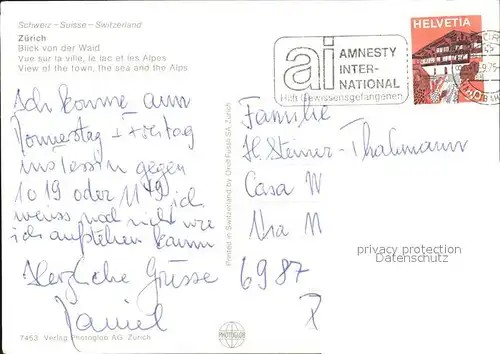 Schweiz – Suisse – Switzerland
Zürich
Blick von der Waid
Vue sur la ville, le lac et les Alpes
View of the town, the sea and the Alps
Ich komme am
Donnerstag + Freitag
gegen
10 19 oder 11 49 ich
weiss noch nicht wie
ich aufstehen kann
Herzliche Grüsse
Daniel
7453 Verlag Photoglob AG, Zürich
Printed in Switzerland by Orell Füssli SA, Zürich
PHOTOGLOB
ai AMNESTY
INTER-
NATIONAL
Hilft Gewissensgefangenen
HELVETIA
Familie
H. Steiner-Thalmann
Casa W
M
6987
privacy protection
Datenschutz